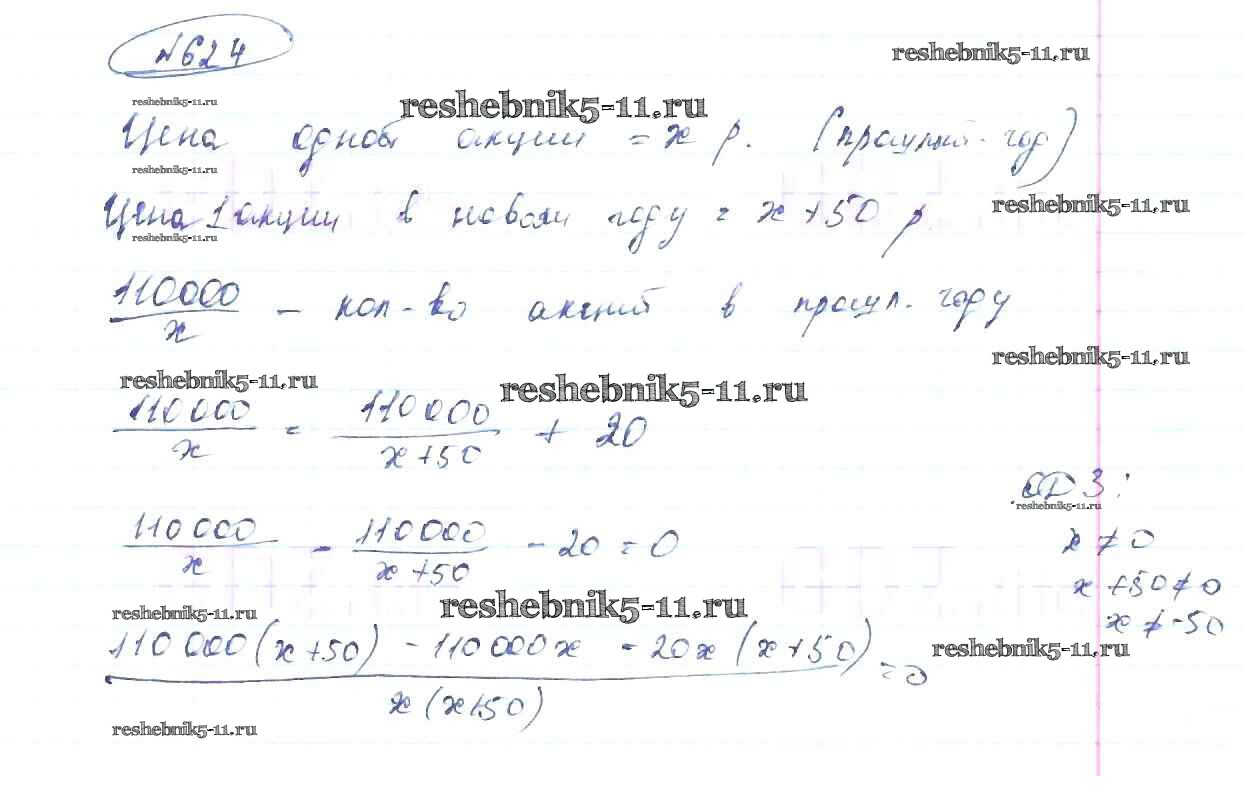 №624
reshebnik5-11.ru
reshebnik5-11.ru
reshebnik5-11.ru
Цена одной акции = x р. (прошлый год)
reshebnik5-11.ru
Цена 1 акции в новом году = x + 50 р.
reshebnik5-11.ru
reshebnik5-11.ru
110000/x – кол-во акций в прошл. году
reshebnik5-11.ru
reshebnik5-11.ru
reshebnik5-11.ru
110 000/x = 110 000/(x+50) + 20
ОДЗ:
reshebnik5-11.ru
110 000/x - 110 000/(x+50) - 20 = 0
x ≠ 0
x + 50 ≠ 0
x ≠ -50
reshebnik5-11.ru
reshebnik5-11.ru
reshebnik5-11.ru
(110 000(x+50) - 110 000x - 20x(x+50))/(x(x+50)) = 0
reshebnik5-11.ru